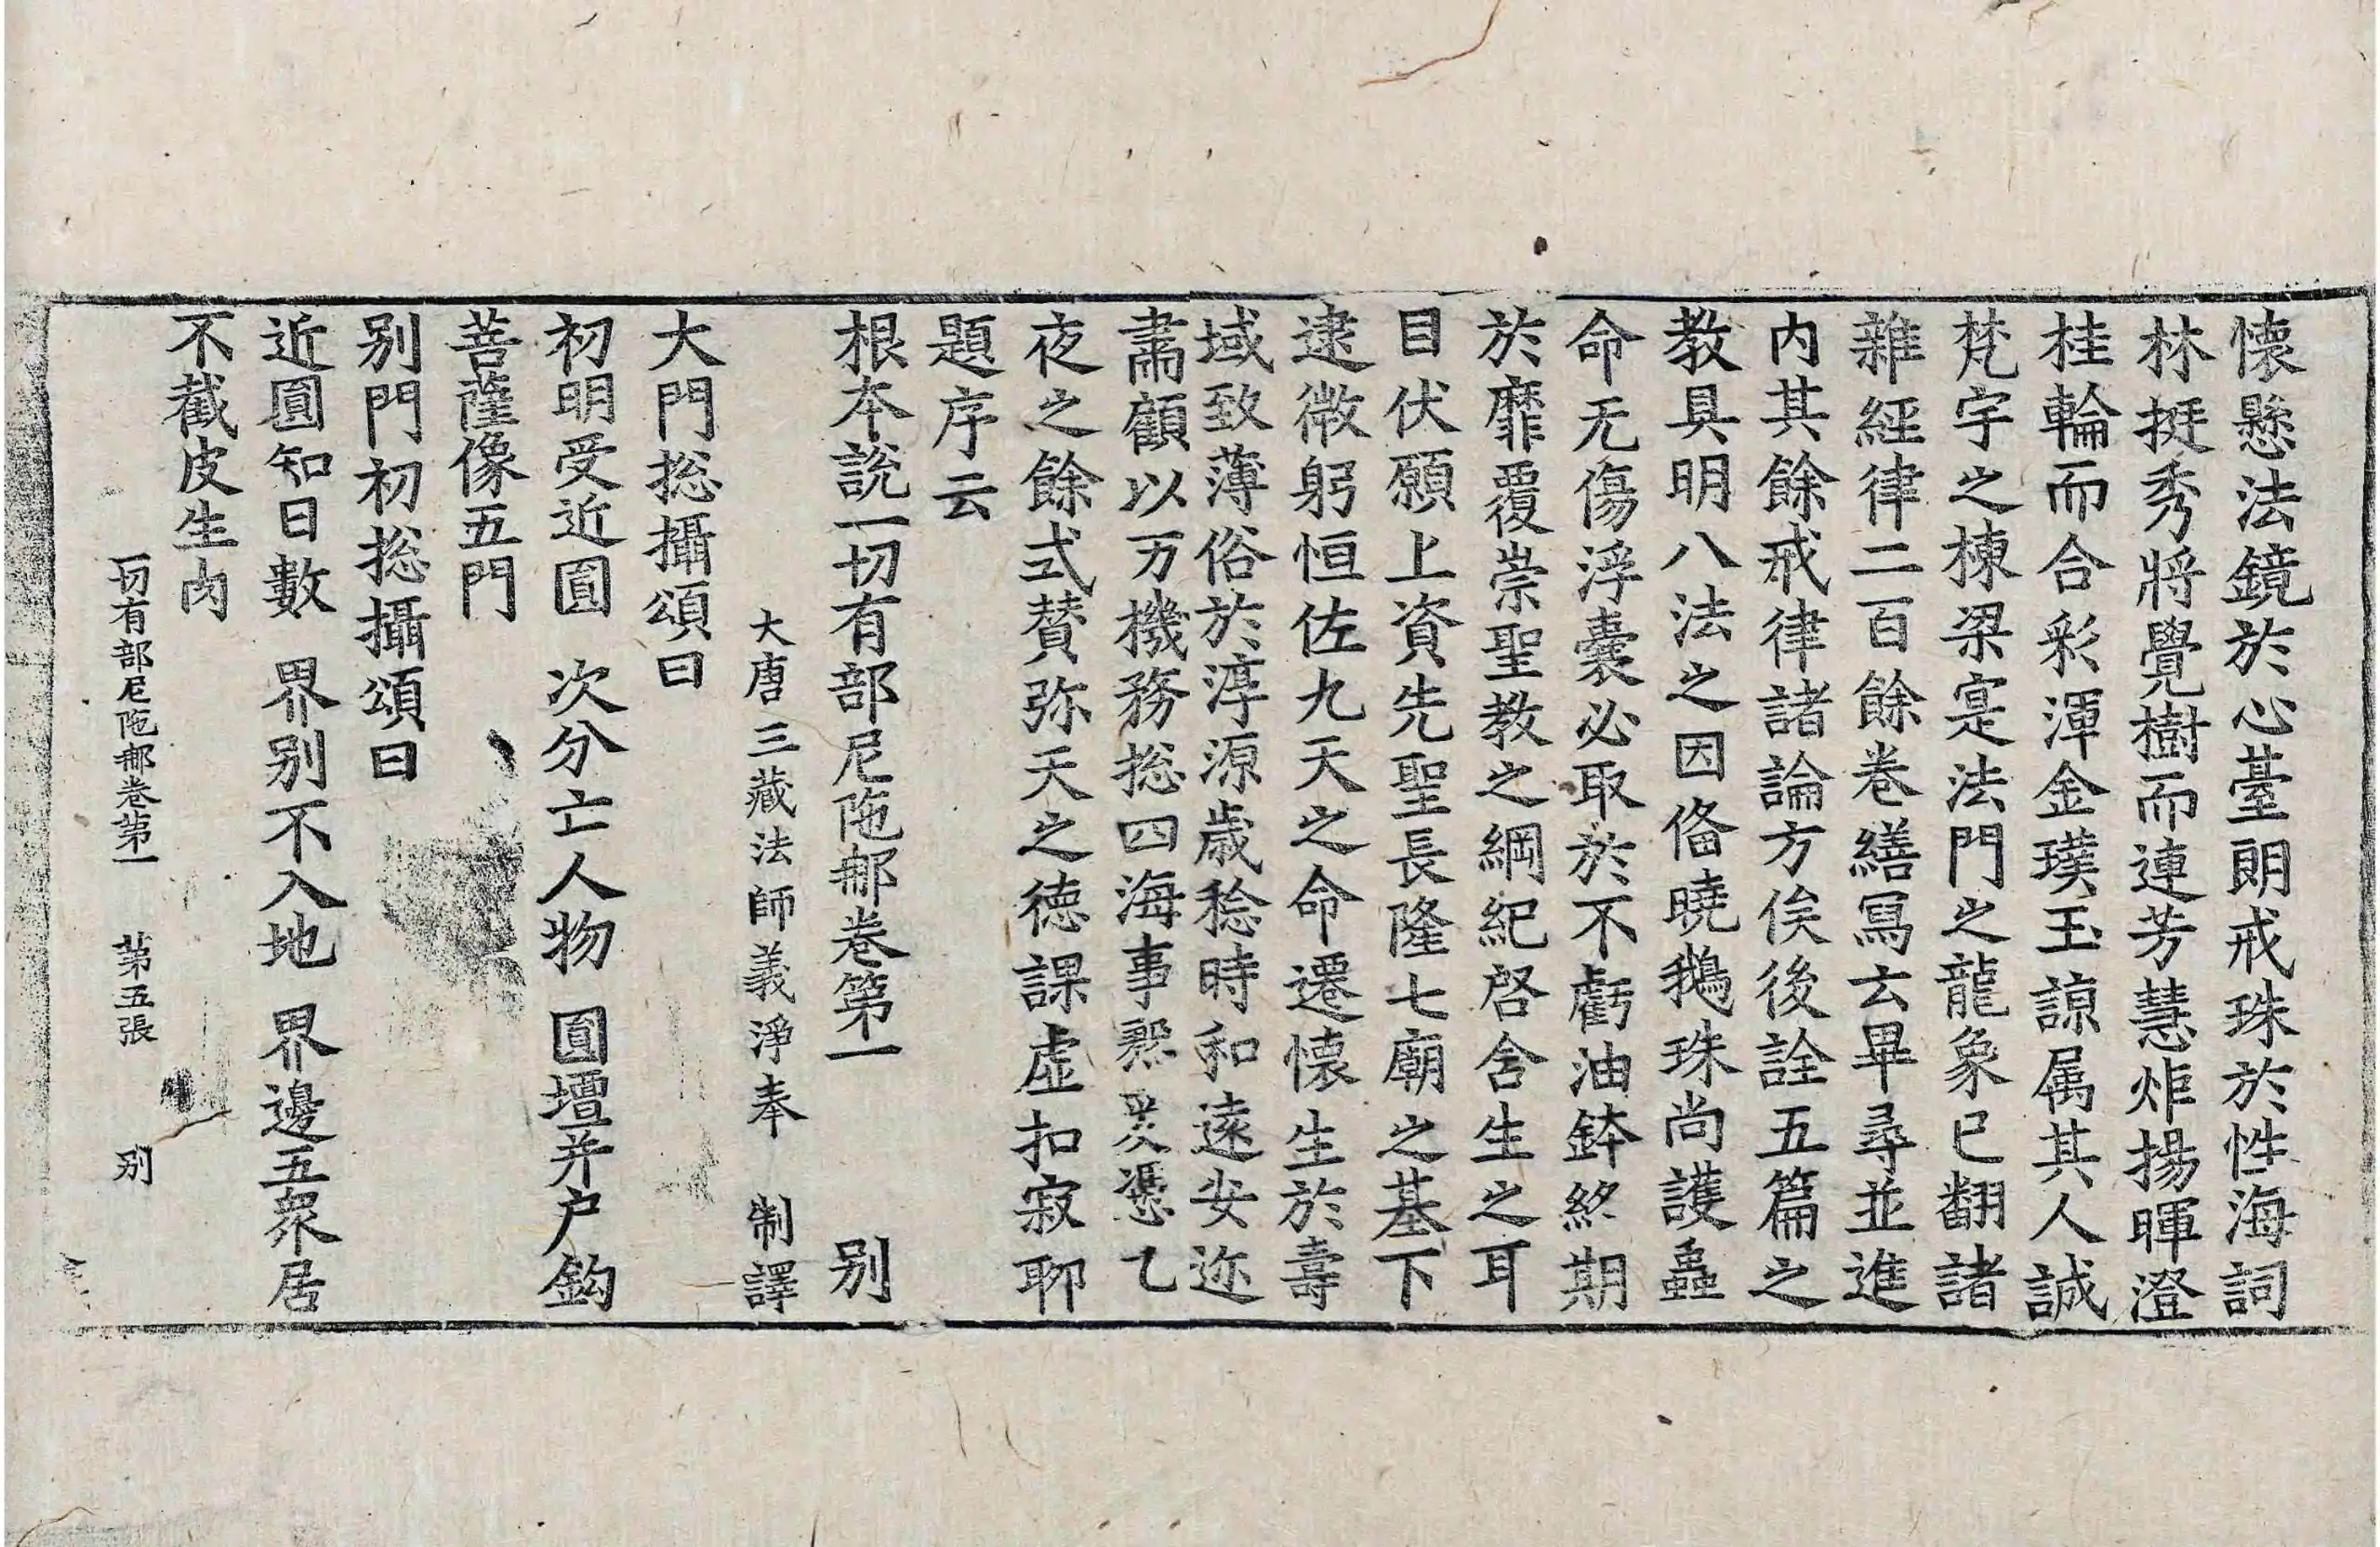 懷懸法鏡於心臺朗戒珠於性海詞
林挺秀將覺樹而連芳慧炬揚暉澄
桂輪而合彩渾金璞玉諒属其人誠
梵宇之棟梁寔法門之龍象已翻諸
雜經律二百餘卷繕寫云畢尋並進
内其餘戒律諸論方俟後詮五篇之
教具明八法之因俻曉鵝珠尚護蟲
命无傷浮囊必取於不虧油鉢終期
於靡覆崇聖教之綱紀啓含生之耳
目伏願上資先聖長隆七廟之基下
逮微躬恒佐九天之命遷懷生於壽
域致薄俗於淳源歲稔時和遠安迩
肅顧以万機務揔四海事殷爰憑乙
夜之餘式賛弥天之德課虚扣寂聊
題序云
根本說一切有部尼陁那卷第一 别
大唐三藏法師義淨奉 制譯
大門揔攝頌曰
初明受近圓 次分亡人物 圓壇并户鈎
菩薩像五門
别門初揔攝頌曰
近圓知日數 界别不入地 界邊五衆居
不截皮生肉
一切有部尼陁那卷第一 第五張 别